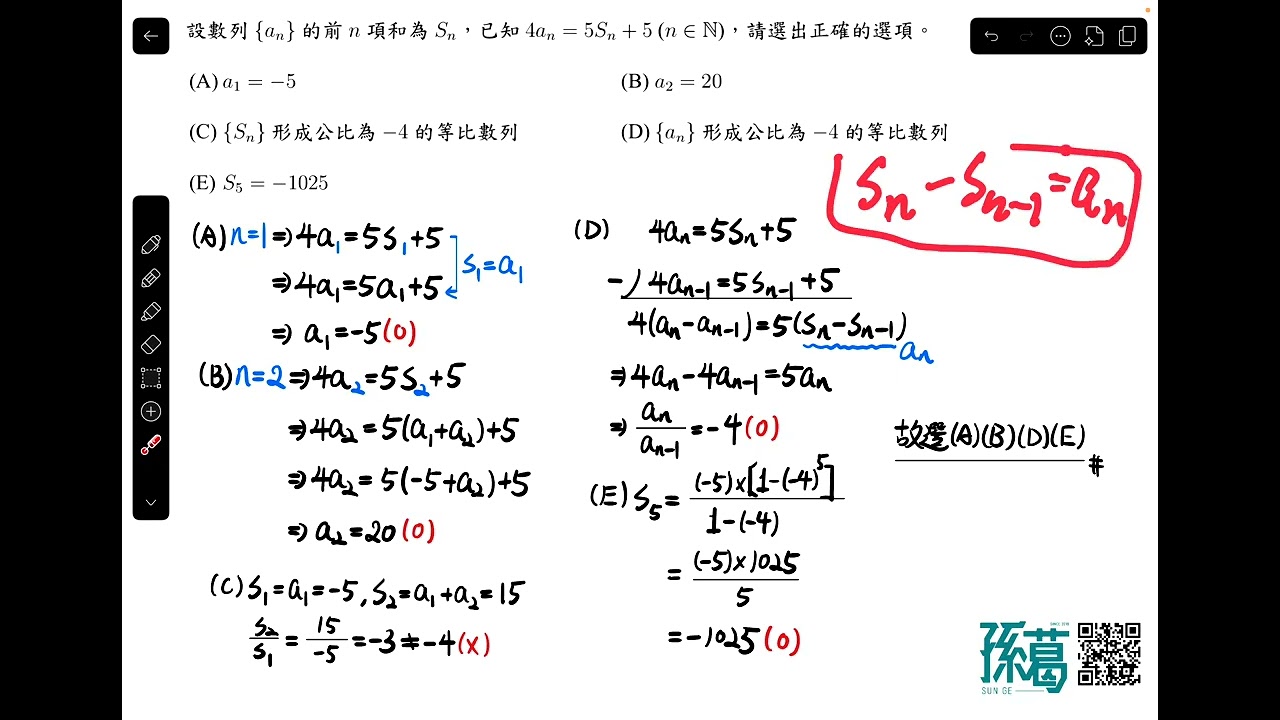 設數列 {aₙ} 的前 n 項和為 Sₙ，已知 4aₙ = 5Sₙ + 5 (n ∈ ℕ)，請選出正確的選項。
(A) a₁ = −5
(B) a₂ = 20
(C) {Sₙ} 形成公比為 −4 的等比數列
(D) {aₙ} 形成公比為 −4 的等比數列
(E) S₅ = −1025
Sₙ − Sₙ₋₁ = aₙ
(A) n=1 ⇒ 4a₁ = 5S₁ + 5
⇒ 4a₁ = 5a₁ + 5
S₁ = a₁
⇒ a₁ = −5 (O)
(B) n=2 ⇒ 4a₂ = 5S₂ + 5
⇒ 4a₂ = 5(a₁+a₂) + 5
⇒ 4a₂ = 5(−5+a₂) + 5
⇒ a₂ = 20 (O)
(C) S₁ = a₁ = −5, S₂ = a₁ + a₂ = 15
S₂/S₁ = 15/−5 = −3 ≠ −4 (X)
(D) 4aₙ = 5Sₙ + 5
−) 4aₙ₋₁ = 5Sₙ₋₁ + 5
4(aₙ − aₙ₋₁) = 5(Sₙ − Sₙ₋₁)
aₙ
⇒ 4aₙ − 4aₙ₋₁ = 5aₙ
⇒ aₙ/aₙ₋₁ = −4 (O)
(E) S₅ = (−5)×[1−(−4)⁵] / 1−(−4)
= (−5)×1025 / 5
= −1025 (O)
故選(A)(B)(D)(E) #
孫葛
SUN GE